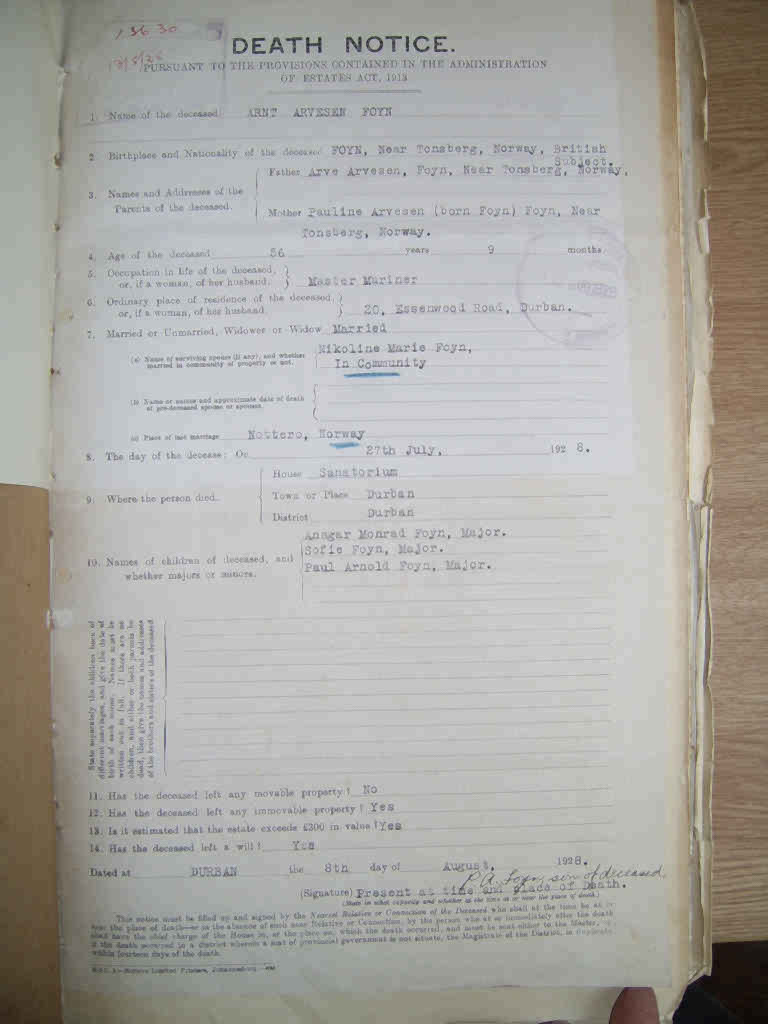 13630
13/8/28
DEATH NOTICE.
PURSUANT TO THE PROVISIONS CONTAINED IN THE ADMINISTRATION
OF ESTATES ACT, 1913
1. Name of the deceased ARNT ARVESEN FOYN
2. Birthplace and Nationality of the deceased FOYN, Near Tonsberg, Norway, British
Subject.
Father Arve Arvesen, Foyn, Near Tonsberg, Norway,
3. Names and Addresses of the
Parents of the deceased.
Mother Pauline Arvesen (born Foyn) Foyn, Near
Tonsberg, Norway.
4. Age of the deceased 56 years 9 months
5. Occupation in life of the deceased,
or, if a woman, of her husband. Master Mariner
6. Ordinary place of residence of the deceased,
or, if a woman, of her husband. 20, Essenwood Road, Durban.
7. Married or Unmarried, Widower or Widow Married
(a) Name of surviving spouse (if any), and whether
married in community of property or not.
Nikoline Marie Foyn,
In Community
(b) Name or names and approximate date of death
of pre-deceased spouse or spouses.
(c) Place of last marriage Nottero, Norway
8. The day of the decease: On 27th July, 1928.
House Sanatorium
9. Where the person died. Town or Place Durban
District Durban
Ansgar Monrad Foyn, Major.
Sofie Foyn, Major.
10. Names of children of deceased, and
whether majors or minors.
Paul Arnold Foyn, Major.
State separately the children born of
different marriages, and give the date of
birth of each minor. Names must be
written out in full. If there are no
children, and either or both parents be
dead, then give the names and addresses
of the brothers and sisters of the deceased
11. Has the deceased left any movable property? No
12. Has the deceased left any immovable property? Yes
13. Is it estimated that the estate exceeds £300 in value? Yes
14. Has the deceased left a will? Yes
Dated at DURBAN the 8th day of August, 1928.
P.A. Foyn, son of deceased,
(Signature) Present at time and place of Death.
(State in what capacity and whether at the time at or near the place of death.)
This notice must be filled up and signed by the Nearest Relative or Connection of the Deceased who shall at the time be at or
near the place of death—or in the absence of such near Relative or Connection, by the person who at or immediately after the death
shall have the chief charge of the House in, or the place on, which the death occurred, and must be sent either to the Master, or,
if the death occurred in a district wherein a seat of provincial government is not situate, the Magistrate of the District, in duplicate
within fourteen days of the death.
Limited Printers, Johannesburg.